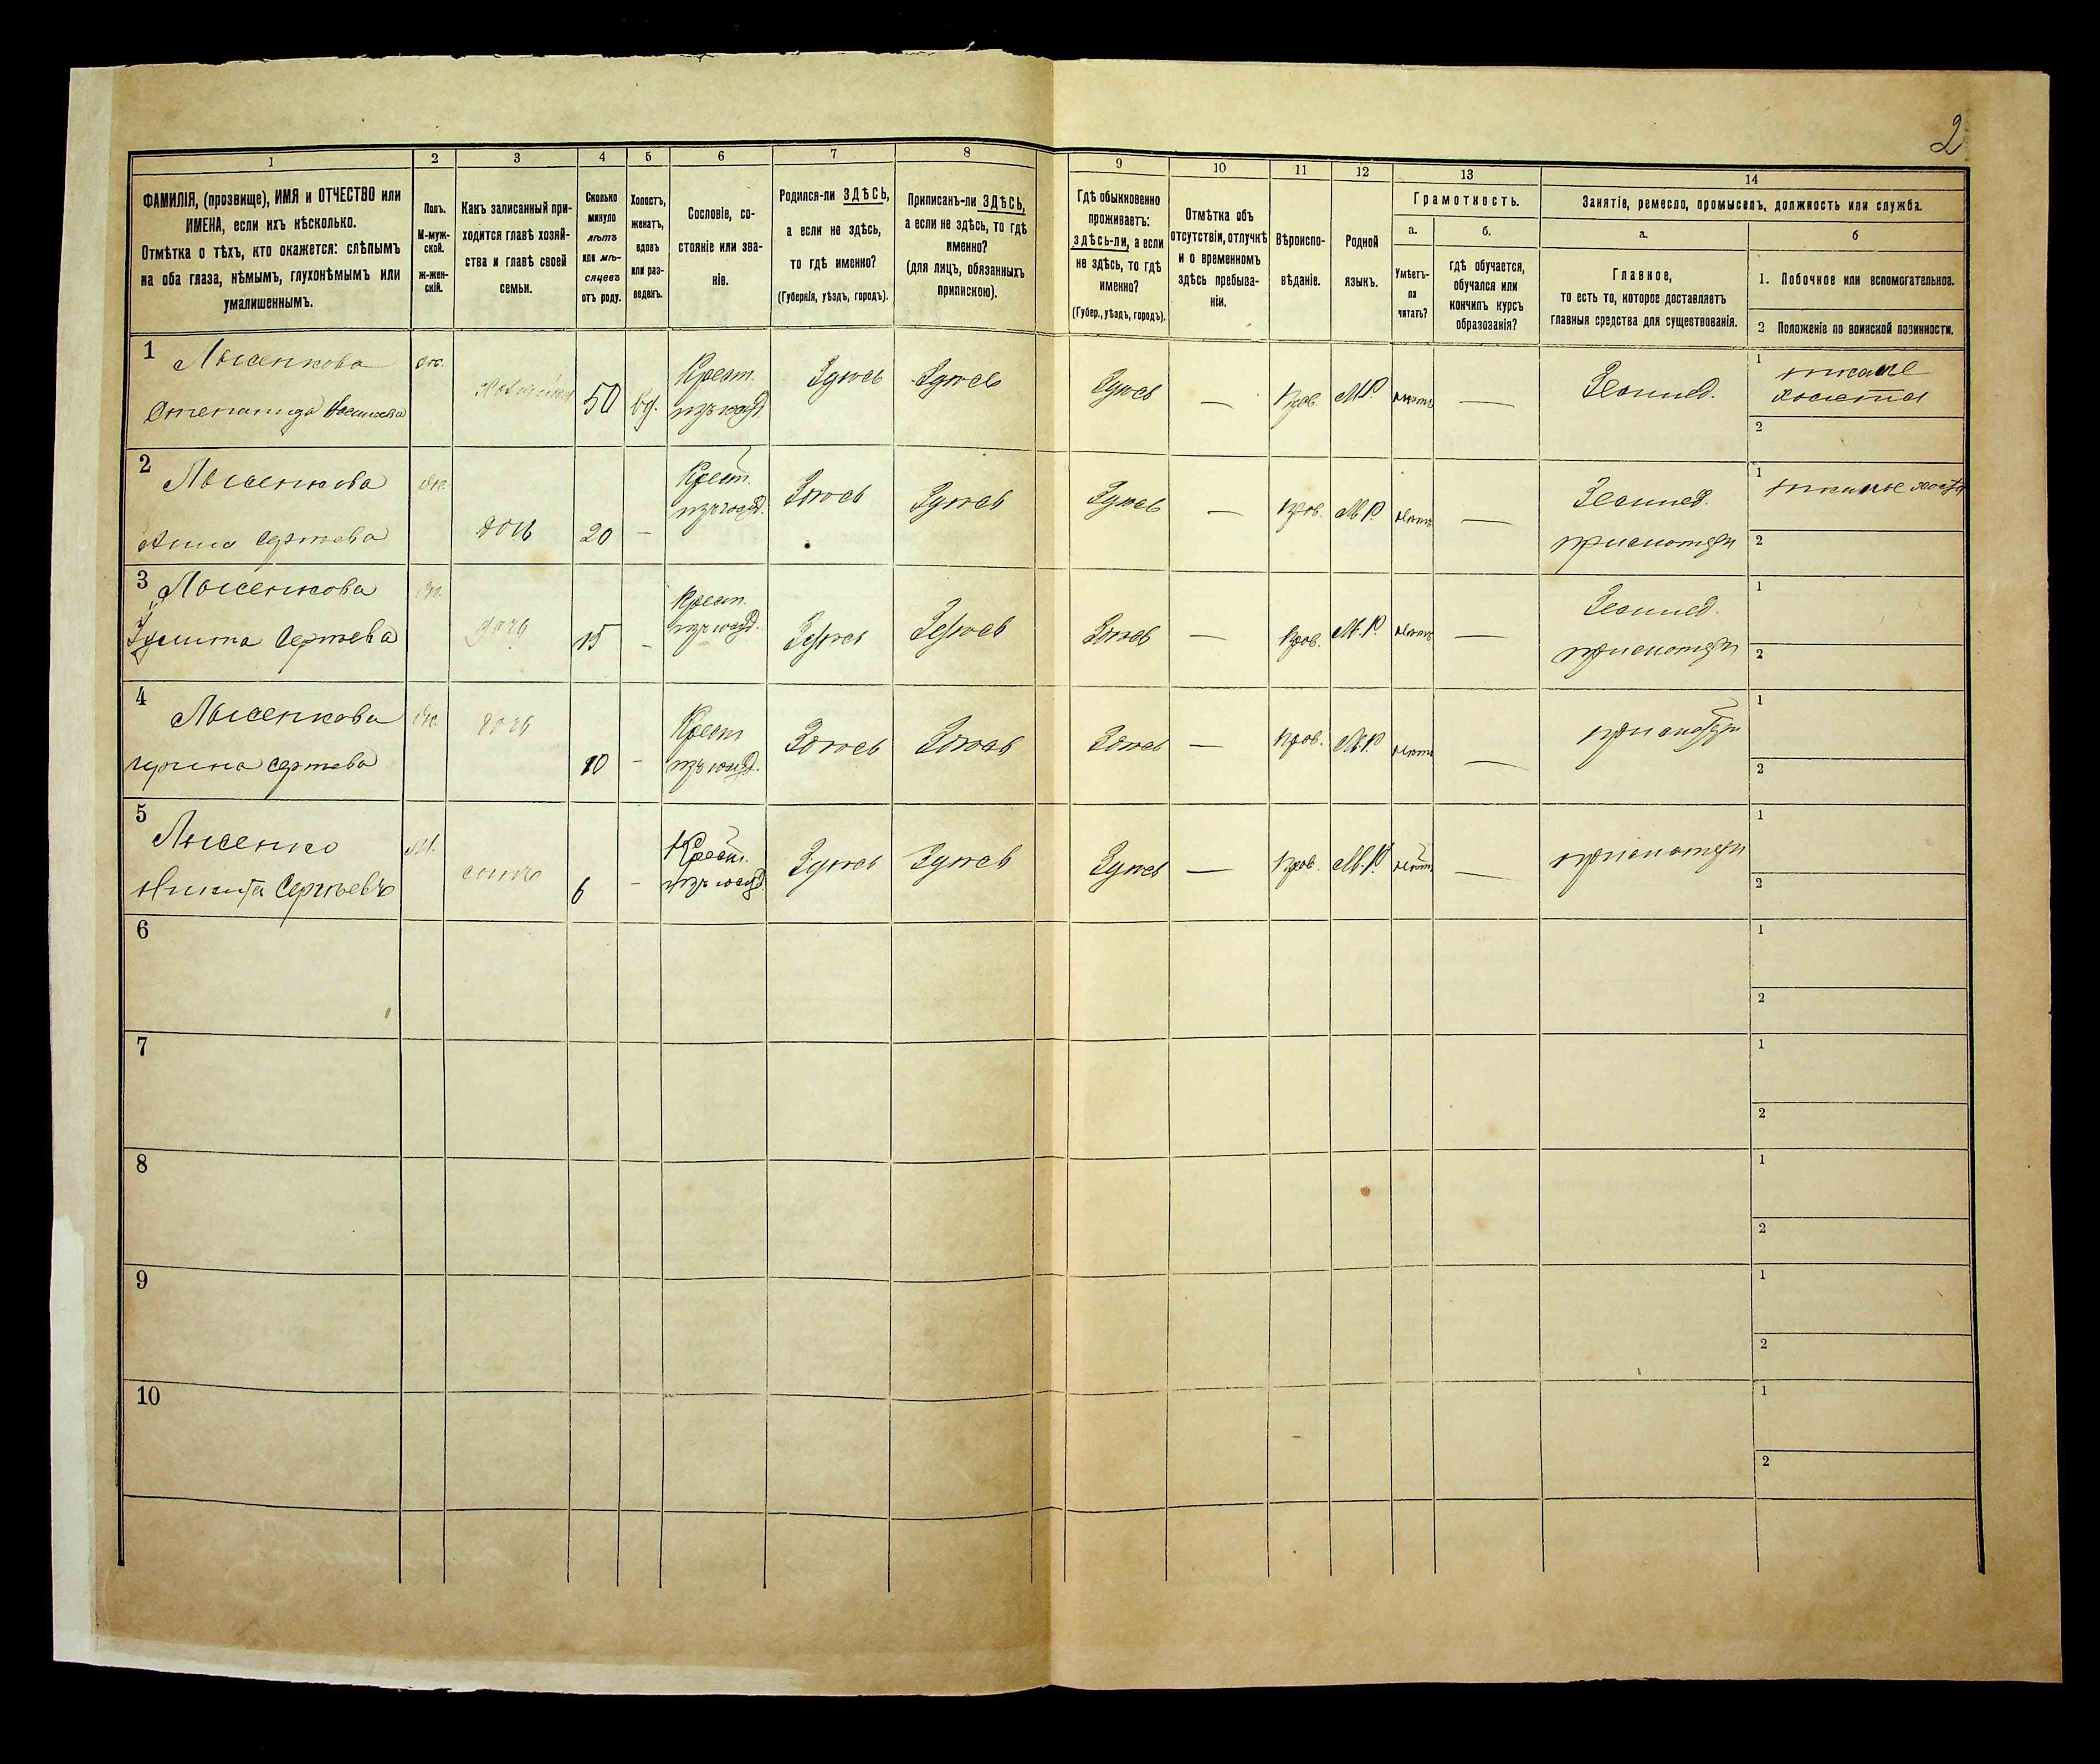 2
1 2 3 4 5 6 7 8 9 10 11 12 13 14
ФАМИЛІЯ, (прозвище), ИМЯ и ОТЧЕСТВО или
ИМЕНА, если ихъ нѣсколько.
Отмѣтка о тѣхъ, кто окажется: слѣпымъ
на оба глаза, нѣмымъ, глухонѣмымъ или
умалишеннымъ.
Полъ.
М-муж-
ской.
ж-жен-
скій.
Какъ записанный при-
ходится главѣ хозяй-
ства и главѣ своей
семьи.
Сколько
минуло
лѣтъ
или мѣ-
сяцевъ
отъ роду.
Холостъ,
женатъ,
вдовъ
или раз-
веденъ.
Сословіе, со-
стояніе или зва-
ніе.
Родился-ли ЗДѢСЬ,
а если не здѣсь,
то гдѣ именно?
(Губернія, уѣздъ, городъ).
Приписанъ-ли ЗДѢСЬ,
а если не здѣсь, то гдѣ
именно?
(для лицъ, обязанныхъ
припискою).
Гдѣ обыкновенно
проживаетъ:
здѣсь-ли, а если
не здѣсь, то гдѣ
именно?
(Губер., уѣздъ, городъ).
Отмѣтка объ
отсутствіи, отлучкѣ
и о временномъ
здѣсь пребыва-
ніи.
Вѣроиспо-
вѣданіе.
Родной
языкъ.
Грамотность.
а.
Умѣетъ-
ли
читать?
б.
гдѣ обучается,
обучался или
кончилъ курсъ
образованія?
Занятіе, ремесло, промыселъ, должность или служба.
а.
Главное,
то есть то, которое доставляетъ
главныя средства для существованія.
б
1. Побочное или вспомогательное.
2 Положеніе по воинской повинности.
1 Лысенкова ж. 50 вд. Крест. Здѣсь Здѣсь Здѣсь — Прав. М.Р. нѣтъ — Землед. 1 тканье
Степанида холста
2
2 Лысенкова ж. Крест. Здѣсь Здѣсь Здѣсь — Прав. М.Р. нѣтъ — Землед. 1 тканье холста
Анна Сергѣева дочь 20 — 2
3 Лысенкова ж. Крест. Землед. 1
Улита Сергѣева дочь 15 - Здѣсь Здѣсь Здѣсь — Прав. М.Р. нѣтъ — 2
4 Лысенкова ж. дочь Крест Здѣсь Здѣсь Здѣсь — Прав. М.Р. нѣтъ — 1
Ирина Сергѣева 10 - 2
5 Лысенко м. Крест. Здѣсь Здѣсь Здѣсь — Прав. М.Р. нѣтъ — 1
Никита Сергѣевъ сынъ 6 - 2
6 1
2
7 1
2
8 1
2
9 1
2
10 1
2